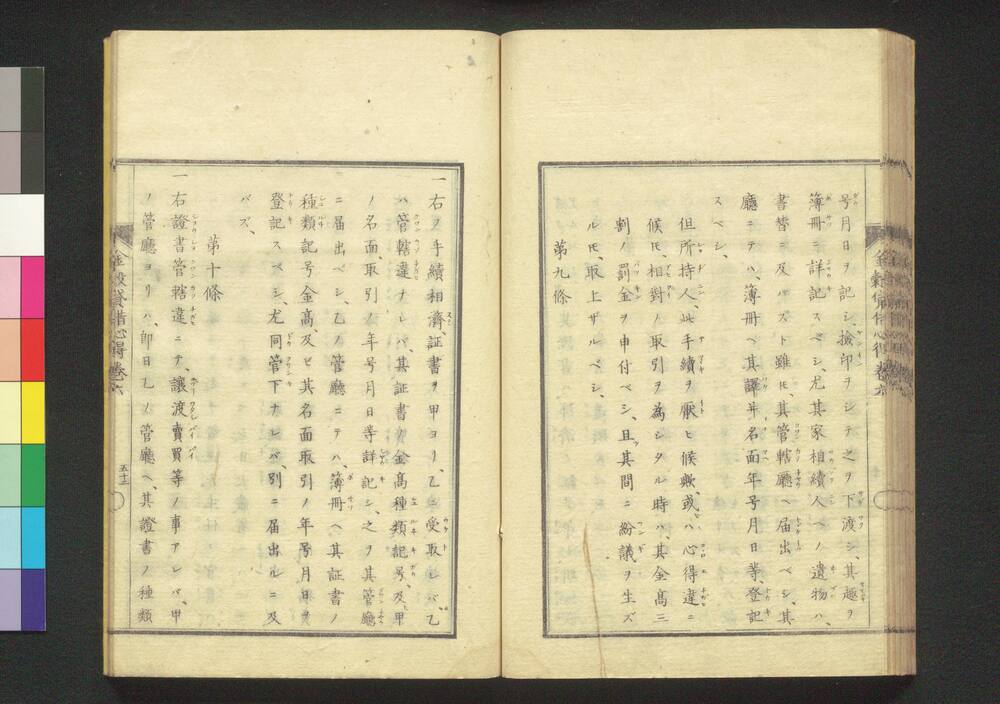 号月日ヲ記シ撿印ヲシテ之ヲ下渡シ、其趣ヲ
簿冊ニ詳記スベシ、尤其家相續人ヘノ遺物ハ、
書替ニ及バズト雖𪜈、其管轄廳ヘ届出ベシ、其
廳ニテハ、簿冊ヘ其譯并名面年号月日等、登記
スベシ、
但所持人、此手續ヲ厭ヒ候歟、或ハ心得違ニ
候𪜈、相對ノ取引ヲ為シタル時ハ、其金高三
割ノ罰金ヲ申付ベシ、且其間ニ紛議ヲ生ズ
ル𪜈、取上ザルベシ、
第九條
一右ヲ手續相濟、証書ヲ甲ヨリ、乙ニ受取レバ、乙
ハ管轄違ナレバ、其証書ノ金高種類記号、及甲
ノ名面、取引ノ年号月日等詳記シ、之ヲ其管廳
ニ届出ベシ、乙ノ管廳ニテハ、簿冊ヘ、其証書ノ
種類記号金高、及ビ其名面取引ノ年号月日ヲ
登記スベシ、尤同管下ナレバ、別ニ届出ルニ及
バズ、
第十條
一右證書管轄違ニテ、讓渡賣買等ノ事アレバ、甲
ノ管廳ヨリハ、即日乙ノ管廳ヘ、其證書ノ種類
金穀貸借心得卷六
五十二